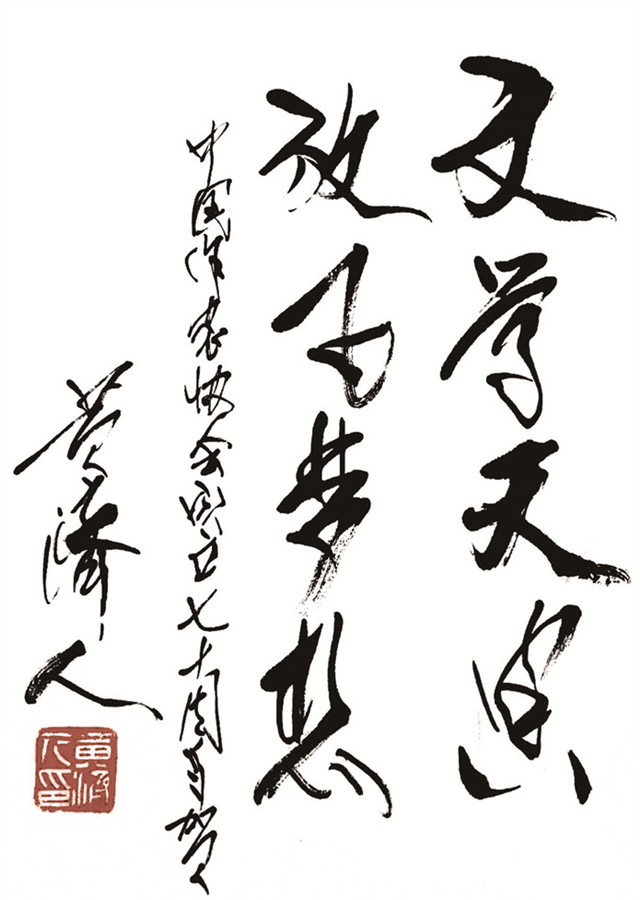 文学天
放飞梦想
中国作家协会成立七十周年贺
黄济人
黄济人印